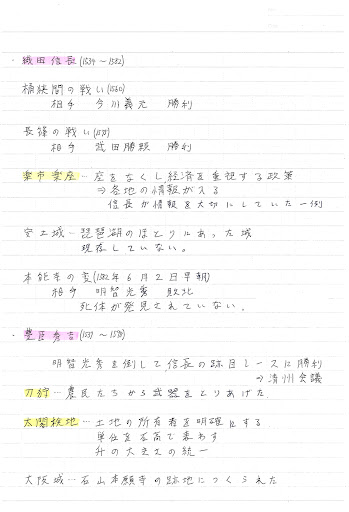 ・織田信長(1534～1582)
桶狭間の戦い(1560)
相手 今川義元 勝利
長篠の戦い(1575)
相手 武田勝頼 勝利
楽市楽座…座をなくし経済を重視する政策
⇒各地の情報が入る
信長が情報を大切にしていた一例
安土城…琵琶湖のほとりにあった城
現存していない。
本能寺の変(1582年6月2日早朝)
相手 明智光秀 敗北
死体が発見されていない。
・豊臣秀吉(1537～1598)
明智光秀を倒して信長の跡目レースに勝利
⇒清州会議
刀狩…農民たちから武器をとりあげた
太閤検地…土地の所有者を明確にする
単位を石高で表わす
升の大きさの統一
大阪城…石山本願寺の跡地につくられた